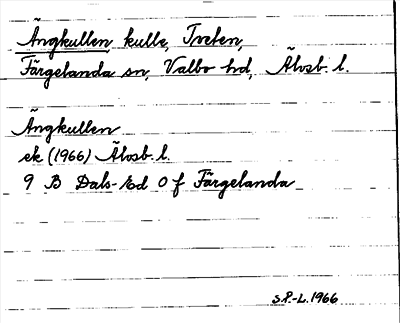 Ängkullen kulle, Tveten,
Färgelanda sn, Valbo hd, Älvsb. l.
Ängkullen
ek (1966) Älvsb. l.
9 B Dals-Ed O f Färgelanda
S.P.-L. 1966